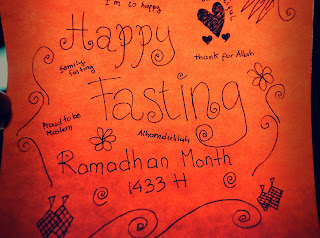 I'm so happy
Happy
family
fasting
thank for Allah
Fasting
Proud to be
Moslem
Alhamdulillah
Ramadhan Month
1433 H